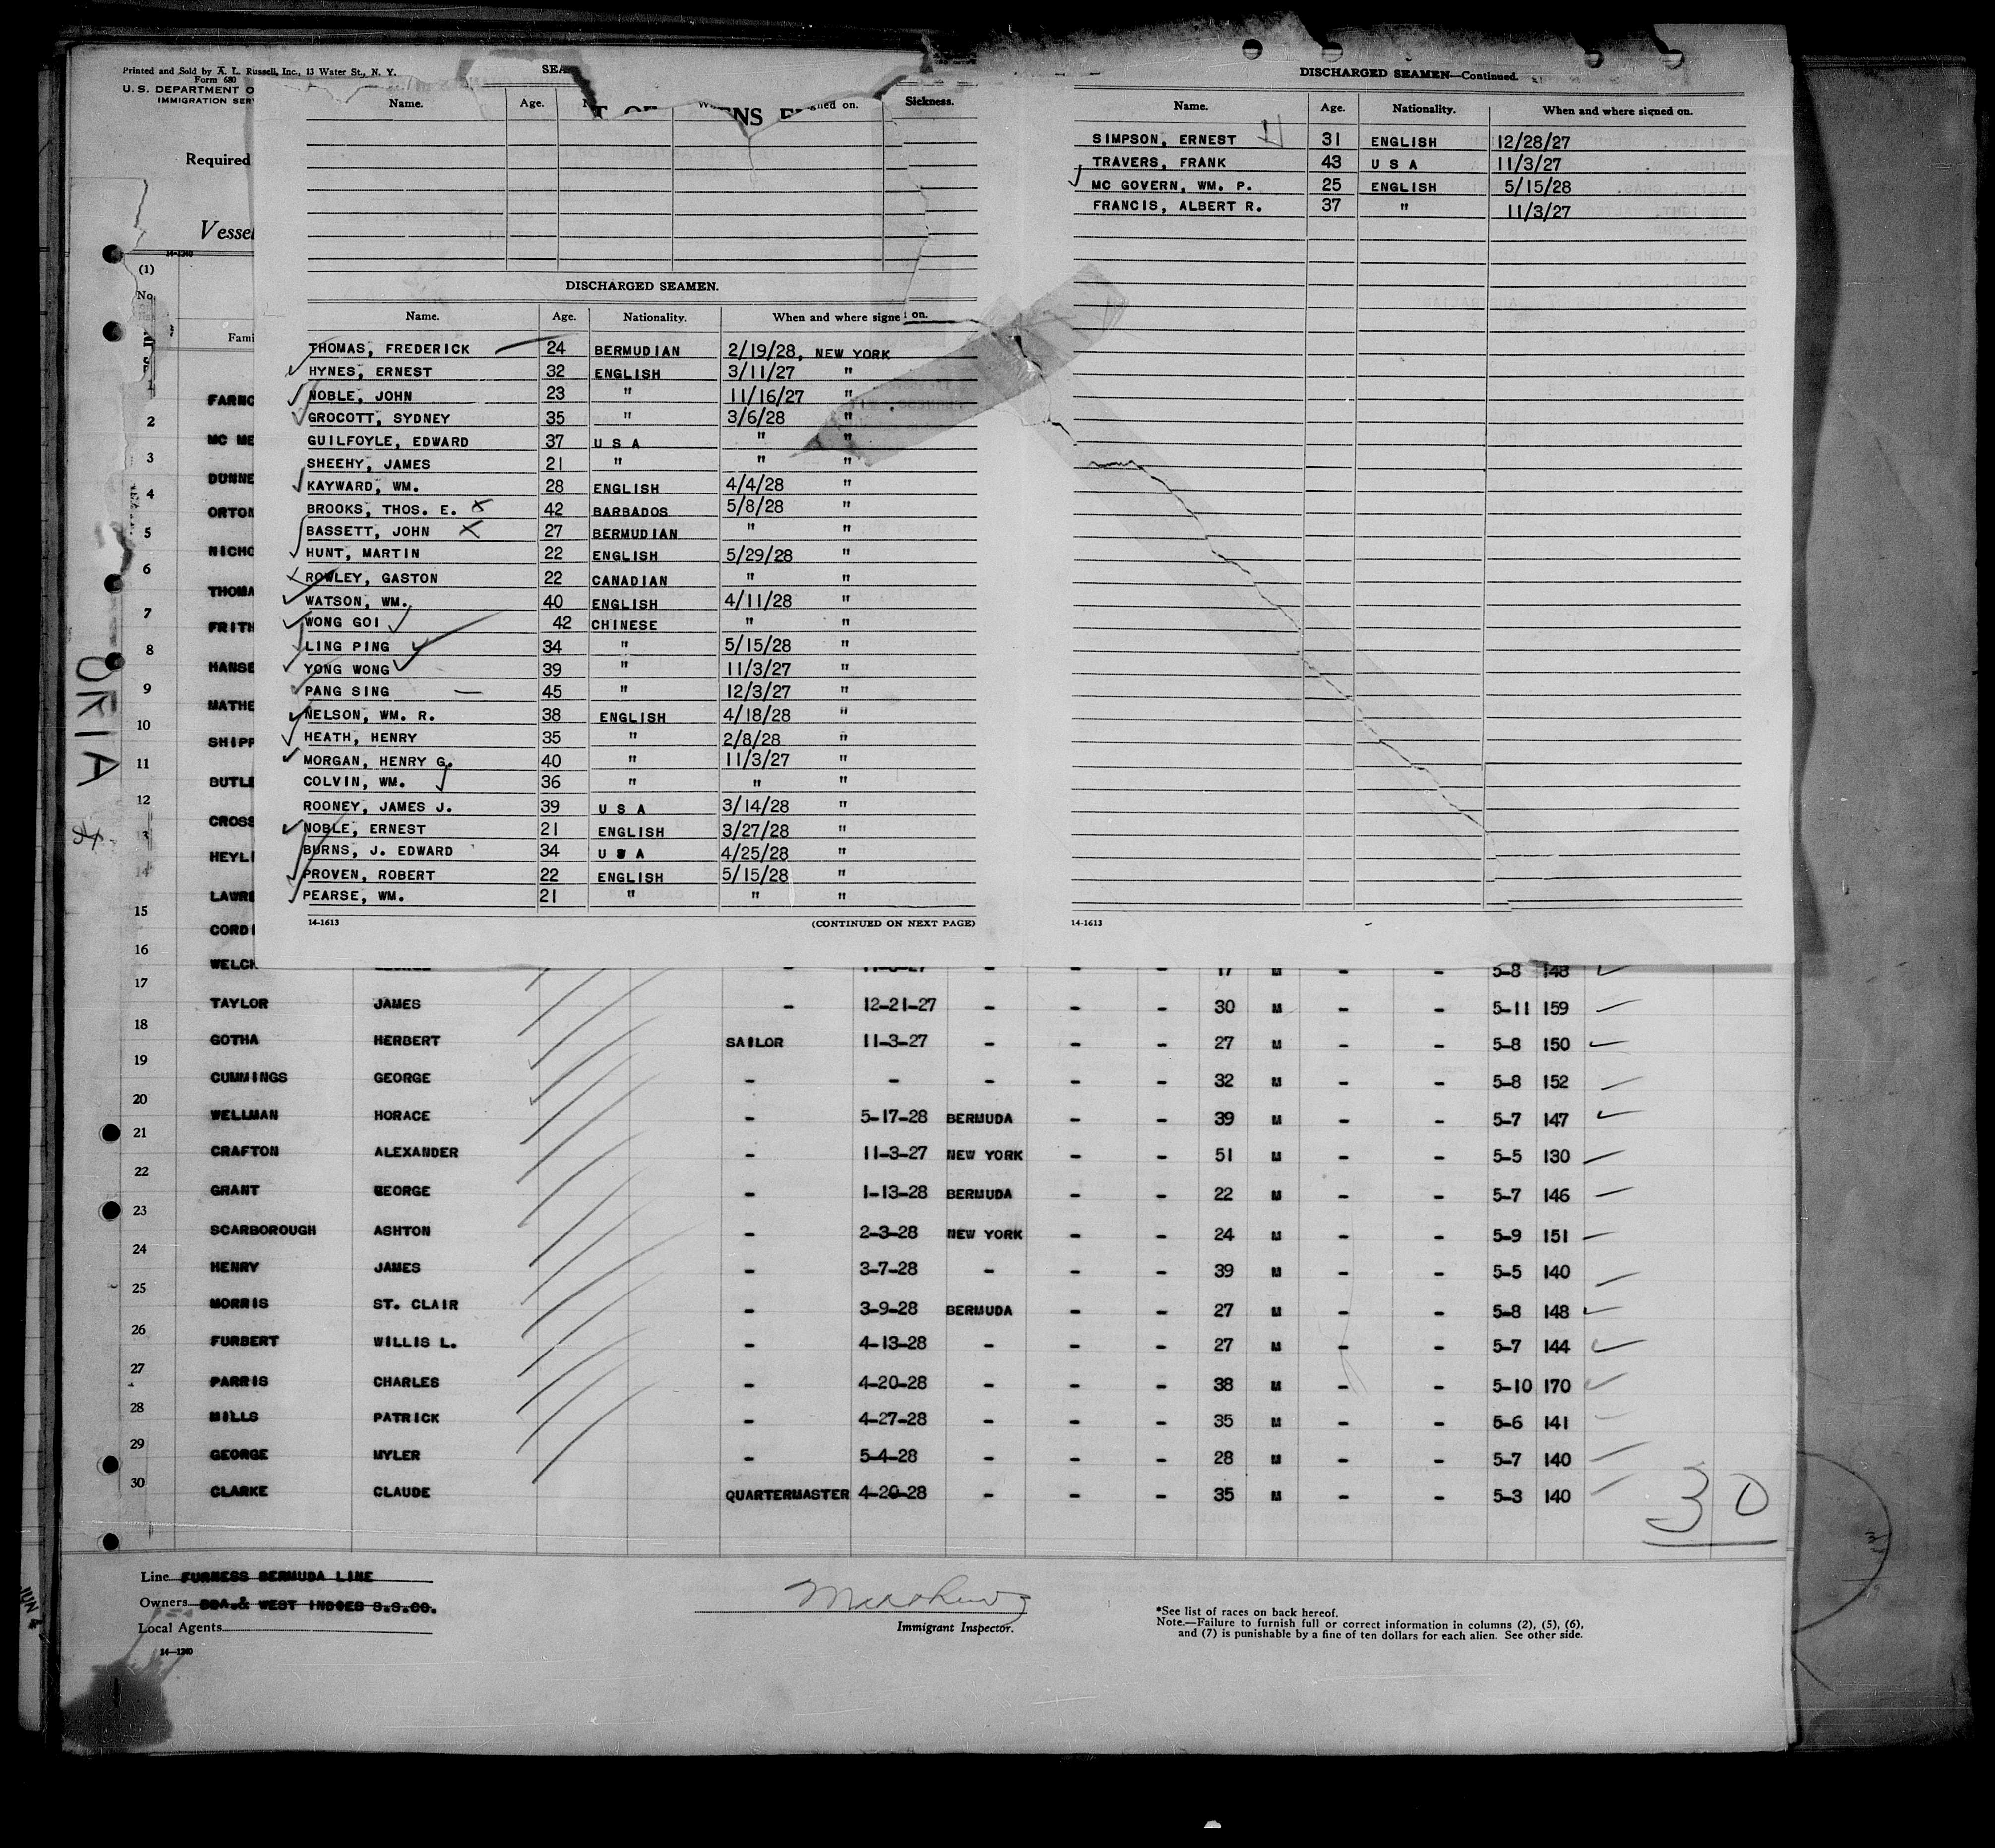 Printed and Sold by A. L. Russell, Inc., 13 Water St., N. Y.
Form 680
U. S. DEPARTMENT O
IMMIGRATION SER
Required
Vessel
14-1240
(1)
No
Fami
SEA
Name. Age. N signed on. Sickness.
DISCHARGED SEAMEN.
Name. Age. Nationality. When and where signe on.
THOMAS, FREDERICK 24 BERMUDIAN 2/19/28, NEW YORK
HYNES, ERNEST 32 ENGLISH 3/11/27 "
NOBLE, JOHN 23 " 11/16/27 "
GROCOTT, SYDNEY 35 " 3/6/28 "
GUILFOYLE, EDWARD 37 U S A " "
SHEEHY, JAMES 21 " " "
KAYWARD, WM. 28 ENGLISH 4/4/28 "
BROOKS, THOS. E. X 42 BARBADOS 5/8/28 "
BASSETT, JOHN X 27 BERMUDIAN " "
HUNT, MARTIN 22 ENGLISH 5/29/28 "
ROWLEY, GASTON 22 CANADIAN " "
WATSON, WM. 40 ENGLISH 4/11/28 "
WONG GOI 42 CHINESE " "
LING PING 34 " 5/15/28 "
YONG WONG 39 " 11/3/27 "
PANG SING 45 " 12/3/27 "
NELSON, WM. R. 38 ENGLISH 4/18/28 "
HEATH, HENRY 35 " 2/8/28 "
MORGAN, HENRY G. 40 " 11/3/27 "
COLVIN, WM. 36 " " "
ROONEY, JAMES J. 39 U S A 3/14/28 "
NOBLE, ERNEST 21 ENGLISH 3/27/28 "
BURNS, J. EDWARD 34 U S A 4/25/28 "
PROVEN, ROBERT 22 ENGLISH 5/15/28 "
PEARSE, WM. 21 " " "
14-1613 (CONTINUED ON NEXT PAGE)
DISCHARGED SEAMEN—Continued.
Name. Age. Nationality. When and where signed on.
SIMPSON, ERNEST 31 ENGLISH 12/28/27
TRAVERS, FRANK 43 U S A 11/3/27
MC GOVERN, WM. P. 25 ENGLISH 5/15/28
FRANCIS, ALBERT R. 37 " 11/3/27
14-1613
1 FARNO
2 MC ME
3 DUNNE
4 ORTON
5 NICHO
6 THOMA
7 FRITH
8 HANSE
9 MATHE
10 SHIPP
11 BUTLE
12 CROSS
13 HEYLI
14 LAWRE
15 CORDI
16 WELCH 11-3-27 - - - 17 M - - 5-8 148
17 TAYLOR JAMES - 12-21-27 - - - 30 M - - 5-11 159
18 GOTHA HERBERT SAILOR 11-3-27 - - - 27 M - - 5-8 150
19 CUMMINGS GEORGE - - - - - 32 M - - 5-8 152
20 WELLMAN HORACE - 5-17-28 BERMUDA - - 39 M - - 5-7 147
21 CRAFTON ALEXANDER - 11-3-27 NEW YORK - - 51 M - - 5-5 130
22 GRANT GEORGE - 1-13-28 BERMUDA - - 22 M - - 5-7 146
23 SCARBOROUGH ASHTON - 2-3-28 NEW YORK - - 24 M - - 5-9 151
24 HENRY JAMES - 3-7-28 - - - 39 M - - 5-5 140
25 MORRIS ST. CLAIR - 3-9-28 BERMUDA - - 27 M - - 5-8 148
26 FURBERT WILLIS L. - 4-13-28 - - - 27 M - - 5-7 144
27 PARRIS CHARLES - 4-20-28 - - - 38 M - - 5-10 170
28 MILLS PATRICK - 4-27-28 - - - 35 M - - 5-6 141
29 GEORGE MYLER - 5-4-28 - - - 28 M - - 5-7 140
30 CLARKE CLAUDE QUARTERMASTER 4-20-28 - - - 35 M - - 5-3 140
30
Line FURNESS BERMUDA LINE
Owners BDA.& WEST INDIES S.S.CO.
Local Agents
14-1240
Immigrant Inspector.
*See list of races on back hereof.
Note.—Failure to furnish full or correct information in columns (2), (5), (6),
and (7) is punishable by a fine of ten dollars for each alien. See other side.
ORIA
JUN 4